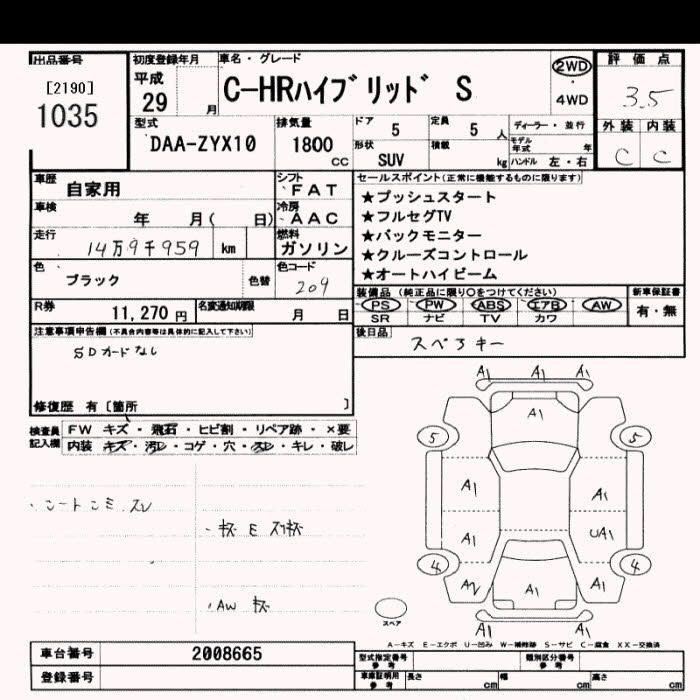 出品番号 初度登録年月 車名・グレード 評価点
[2190] 平成 C-HRハイブリッド S 2WD 3.5
1035 29 月 4WD
型式 排気量 ドア 定員 ディーラー・並行 外装 内装
DAA-ZYX10 1800 cc 5 5 人 モデル年式 年 C C
形状 積載
SUV kg ハンドル 左・右
車歴 自家用 シフト FAT セールスポイント(正常に機能するものに限ります)
車検 年 月( 日) 冷房 AAC ★プッシュスタート
走行 14万9千959 km 燃料 ガソリン ★フルセグTV
★バックモニター
色 ブラック 色替 色コード 209 ★クルーズコントロール
★オートハイビーム
R券 11,270円 名変通知期限 月 日 装備品(純正品に限り○をつけてください) 新車保証書
PS PW ABS エアB AW 有・無
SR ナビ TV カワ
注意事項申告欄(不具合内容等は具体的に記入して下さい) 後日品
SDカードなし スペアキー
修復歴 有[箇所 ]
検査員記入欄 FW キズ・飛石・ヒビ割・リペア跡・×要
内装 キズ・汚レ・コゲ・穴・スレ・キレ・破レ
A1 A1 A1
A1
5 5
A1 A1
A1 UA1
4 4
A2 A1 A1
A1 A1
・AW キズ
スペア
A-キズ E-エクボ U-凹み W-補修跡 S-サビ C-腐食 XX-交換済
車台番号 2008665 型式指定番号 参考 類別区分番号 参考
登録番号 車庫証明用 参考 長さ cm 幅 cm 高さ cm